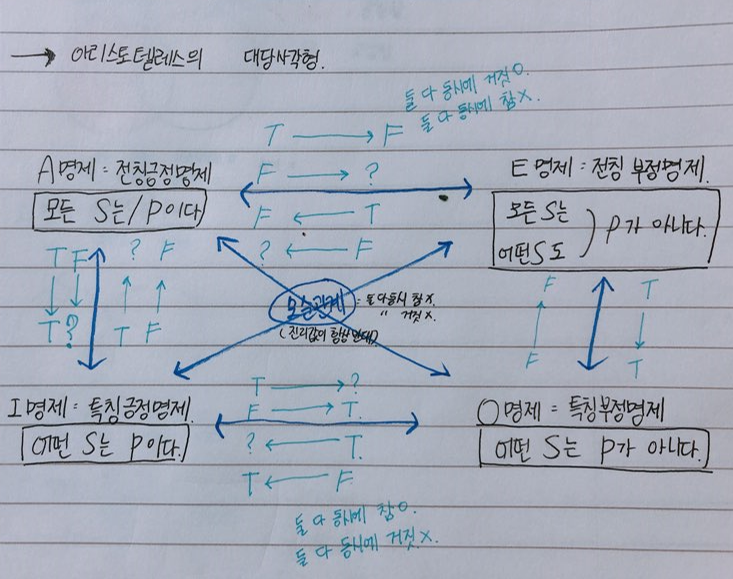 → 아리스토텔레스의 대당사각형.
둘 다 동시에 거짓 O.
둘 다 동시에 참 X.
T → F
A 명제 : 전칭긍정명제
F → ?
E 명제 : 전칭 부정명제.
모든 S는 / P이다
F ← T
모든 S는
어떤 S도 ) P가 아니다.
? ← F
T F ? F
T ? T F
F T
F T
모순관계 = 둘 다 동시 참 X.
〃 거짓 X.
(진리값이 항상 반대)
T → ?
I 명제 : 특칭긍정명제.
F → T.
O 명제 = 특칭부정명제
어떤 S는 P이다.
? ← T.
어떤 S는 P가 아니다.
T ← F
둘 다 동시에 참 O.
둘 다 동시에 거짓 X.